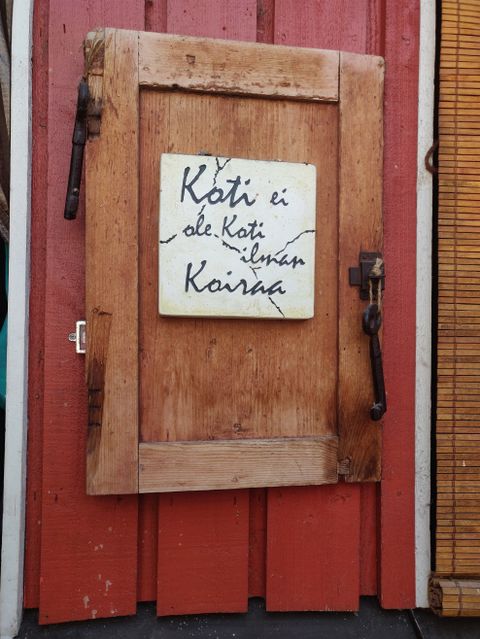 Koti ei
ole Koti
ilman
Koiraa